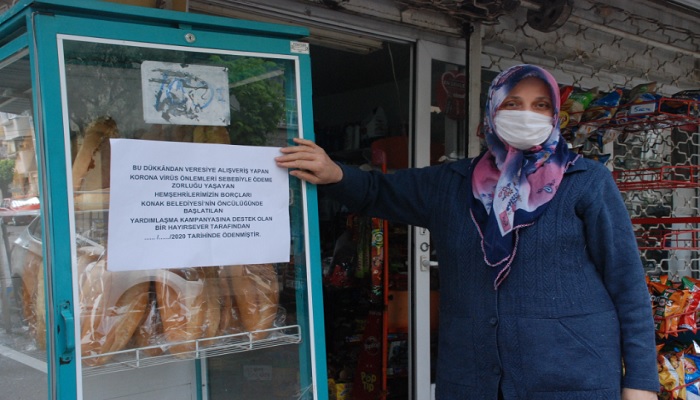 BU DÜKKÂNDAN VERESİYE ALIŞVERİŞ YAPAN
KORONA VİRÜS ÖNLEMLERİ SEBEBİYLE ÖDEME
ZORLUĞU YAŞAYAN
HEMŞEHRİLERİMİZİN BORÇLARI
KONAK BELEDİYESİ'NİN ÖNCÜLÜĞÜNDE
BAŞLATILAN
YARDIMLAŞMA KAMPANYASINA DESTEK OLAN
BİR HAYIRSEVER TARAFINDAN
...... /....../2020 TARİHİNDE ÖDENMİŞTİR.